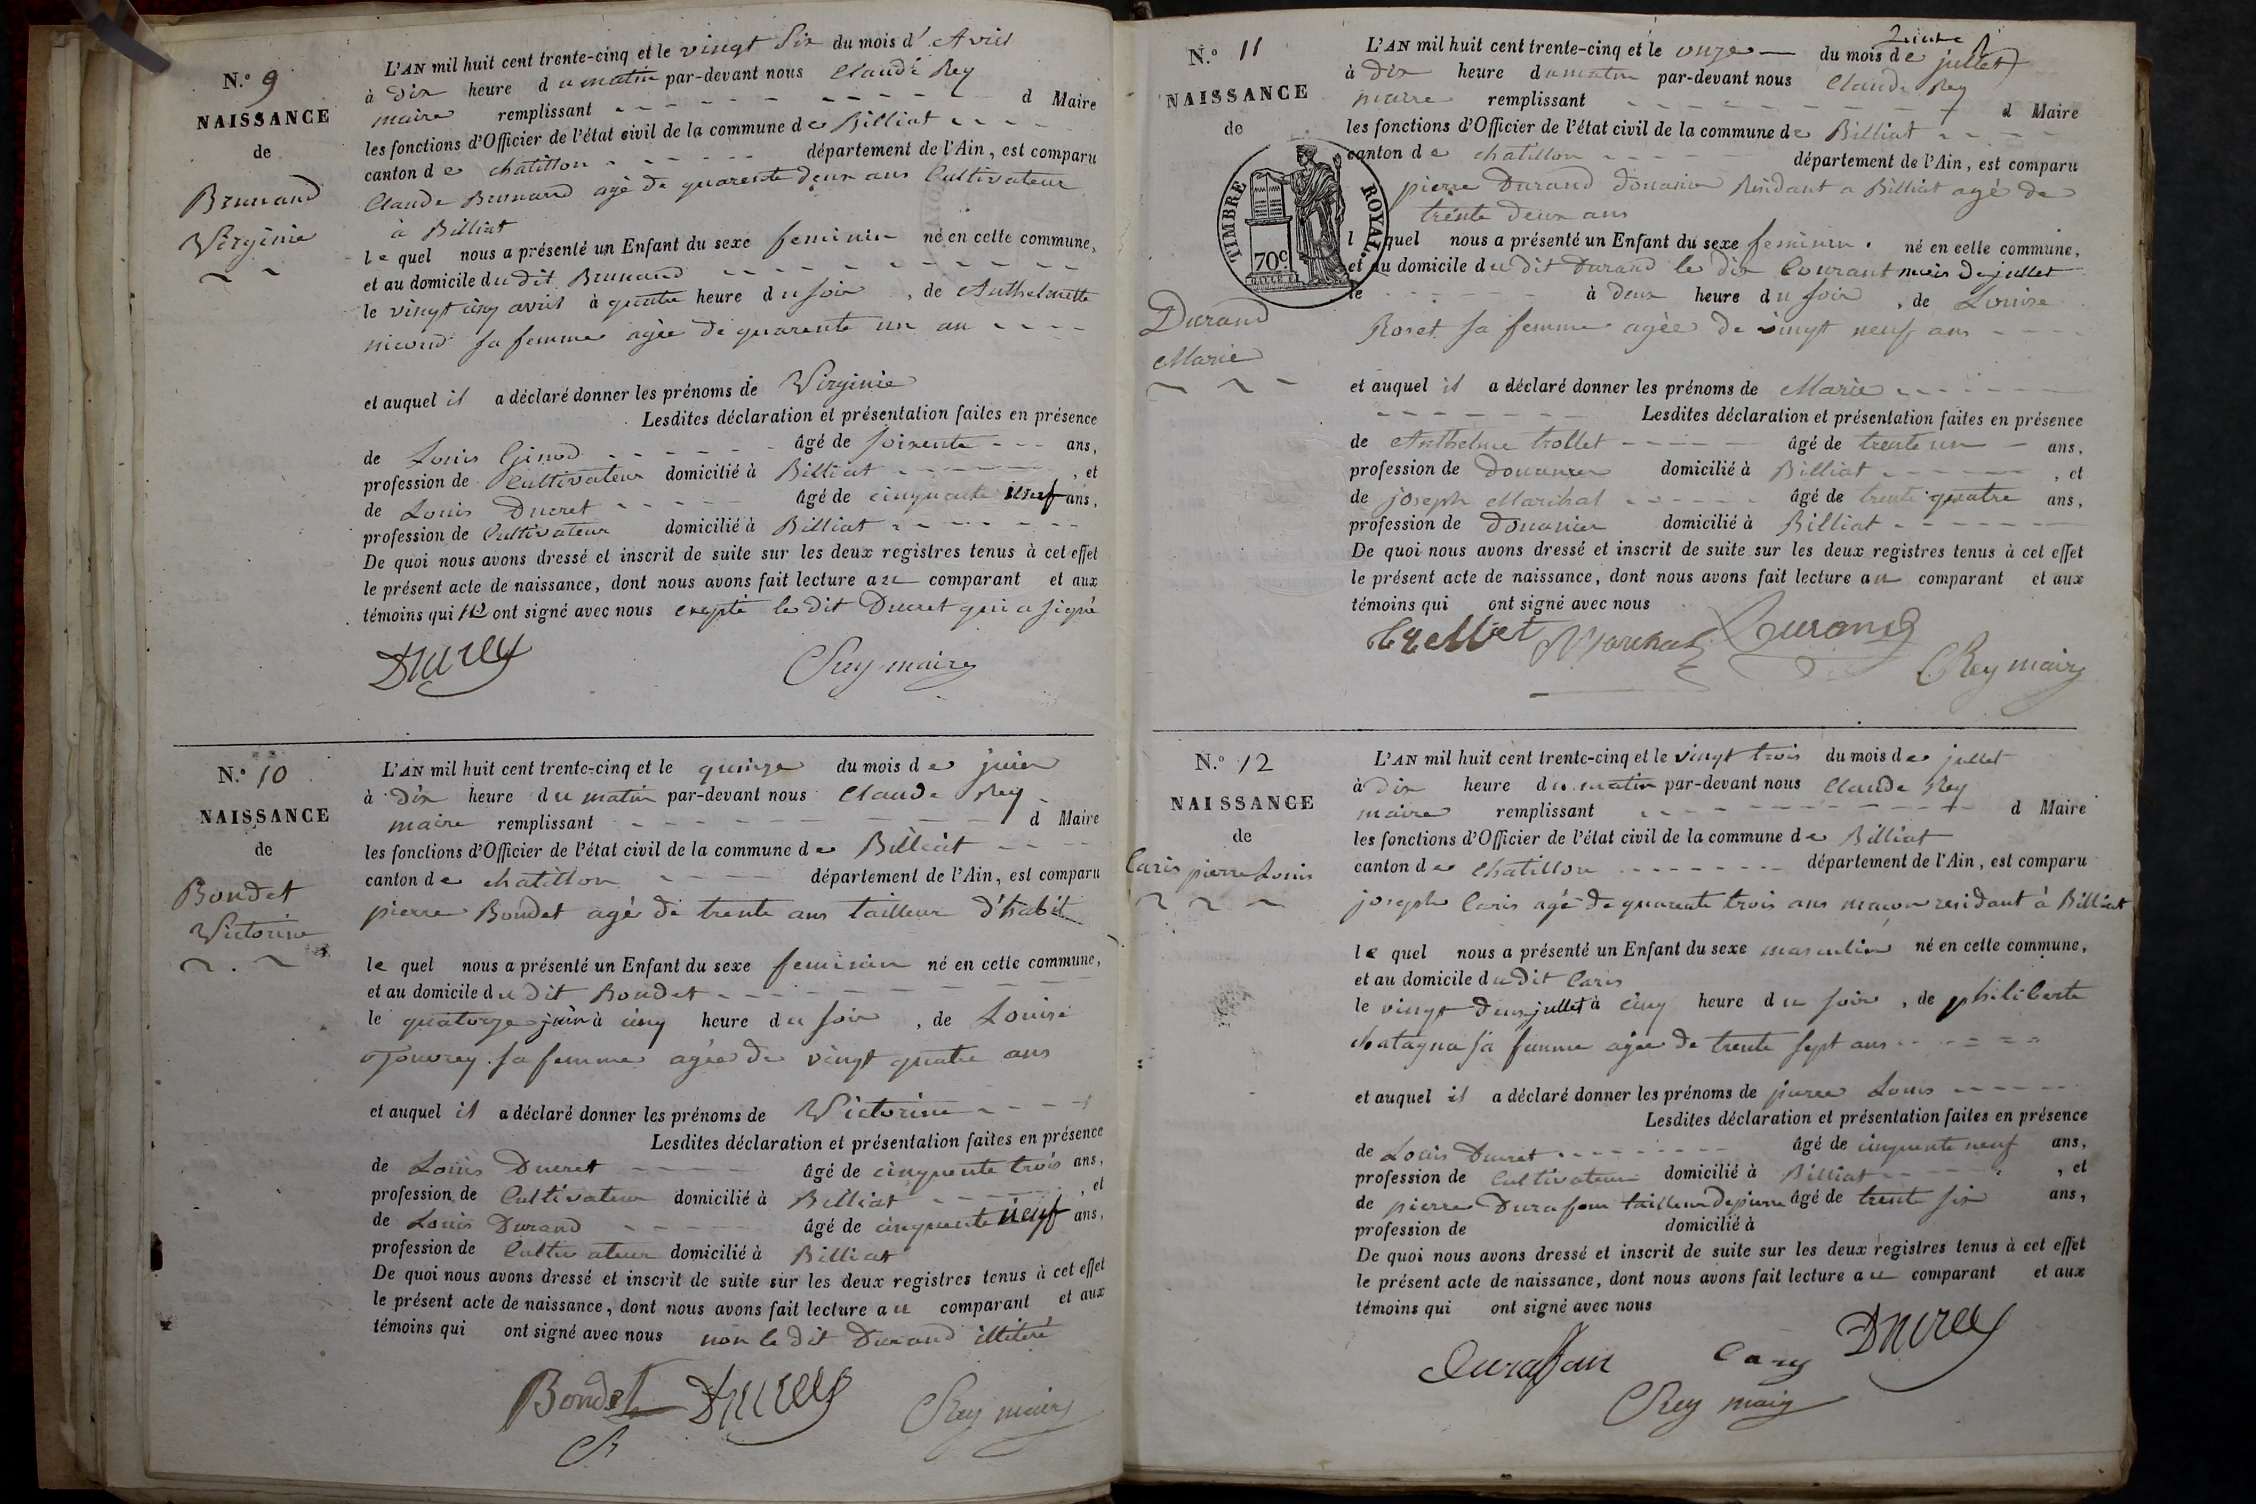 N.º 9
NAISSANCE
de
Brunand
Virginie
L'AN mil huit cent trente-cinq et le vingt Six du mois d' Avril
à dix heure du matin par-devant nous Claude Rey
maire remplissant d Maire
les fonctions d'Officier de l'état civil de la commune de Billiat
canton de chatillon département de l'Ain, est comparu
Claude Brunand agé de quarente deux ans Cultivateur
à Billiat
le quel nous a présenté un Enfant du sexe feminin né en cette commune,
et au domicile du dit Brunand
le vingt cinq avril à quatre heure du soir, de Anthelmette
sa femme agée de quarente un an
et auquel il a déclaré donner les prénoms de Virginie
Lesdites déclaration et présentation faites en présence
de Louis Ginod âgé de soixente ans,
profession de Cultivateur domicilié à Billiat, et
de Louis Ducret âgé de cinquante neuf ans,
profession de Cultivateur domicilié à Billiat
De quoi nous avons dressé et inscrit de suite sur les deux registres tenus à cet effet
le présent acte de naissance, dont nous avons fait lecture au comparant et aux
témoins qui ont signé avec nous exepté le dit Ducret qui a signé
Ducret
CRey maire
N.º 10
NAISSANCE
de
Bondet
Victorine
L'AN mil huit cent trente-cinq et le quinze du mois de juin
à dix heure du matin par-devant nous Claude Rey
maire remplissant d Maire
les fonctions d'Officier de l'état civil de la commune de Billiat
canton de chatillon département de l'Ain, est comparu
pierre Bondet agé de trente ans tailleur d'habit
le quel nous a présenté un Enfant du sexe feminin né en cette commune,
et au domicile du dit Bondet
le quatorze juin à cinq heure du soir, de Louise
sa femme agée de vingt quatre ans
et auquel il a déclaré donner les prénoms de Victorine
Lesdites déclaration et présentation faites en présence
de Louis Ducret âgé de cinquente trois ans,
profession de Cultivateur domicilié à Billiat, et
de Louis Durand âgé de cinquente neuf ans,
profession de Cultivateur domicilié à Billiat
De quoi nous avons dressé et inscrit de suite sur les deux registres tenus à cet effet
le présent acte de naissance, dont nous avons fait lecture au comparant et aux
témoins qui ont signé avec nous non le dit Durand illitéré
Bondet Ducret CRey maire
N.º 11
NAISSANCE
de
TIMBRE ROYAL.
70c
Durand
Marie
L'AN mil huit cent trente-cinq et le onze du mois de juillet
à dix heure du matin par-devant nous Claude Rey
maire remplissant d Maire
les fonctions d'Officier de l'état civil de la commune de Billiat
canton de chatillon département de l'Ain, est comparu
pierre Durand douanier Residant a Billiat agé de
trente deux ans
l quel nous a présenté un Enfant du sexe feminin. né en cette commune,
et au domicile du dit Durand le dix Courant mois de jullet
le à deux heure du soir, de Louise
Roset sa femme agée de vingt neuf ans
et auquel il a déclaré donner les prénoms de Marie
Lesdites déclaration et présentation faites en présence
de Anthelme trollet âgé de trente un ans,
profession de Douanier domicilié à Billiat, et
de joseph Marichal âgé de trente quatre ans,
profession de Douanier domicilié à Billiat
De quoi nous avons dressé et inscrit de suite sur les deux registres tenus à cet effet
le présent acte de naissance, dont nous avons fait lecture au comparant et aux
témoins qui ont signé avec nous
Marichal Durand
CRey maire
N.º 12
NAISSANCE
de
Caris pierre Louis
L'AN mil huit cent trente-cinq et le vingt trois du mois de jullet
à dix heure du matin par-devant nous Claude Rey
maire remplissant d Maire
les fonctions d'Officier de l'état civil de la commune de Billiat
canton de Chatillon département de l'Ain, est comparu
joseph Caris agé de quarente trois ans maçon residant à Billiat
le quel nous a présenté un Enfant du sexe masculin né en cette commune,
et au domicile du dit Caris
le vingt deux jullet à cinq heure du soir, de philiberte
chatagna sa femme agée de trente sept ans
et auquel il a déclaré donner les prénoms de pierre Louis
Lesdites déclaration et présentation faites en présence
de Louis Ducret âgé de cinquente neuf ans,
profession de Cultivateur domicilié à Billiat, et
de pierre Durafour tailleur de pierre âgé de trente six ans,
profession de domicilié à
De quoi nous avons dressé et inscrit de suite sur les deux registres tenus à cet effet
le présent acte de naissance, dont nous avons fait lecture au comparant et aux
témoins qui ont signé avec nous
Ducret
Duraffour Cary
CRey maire